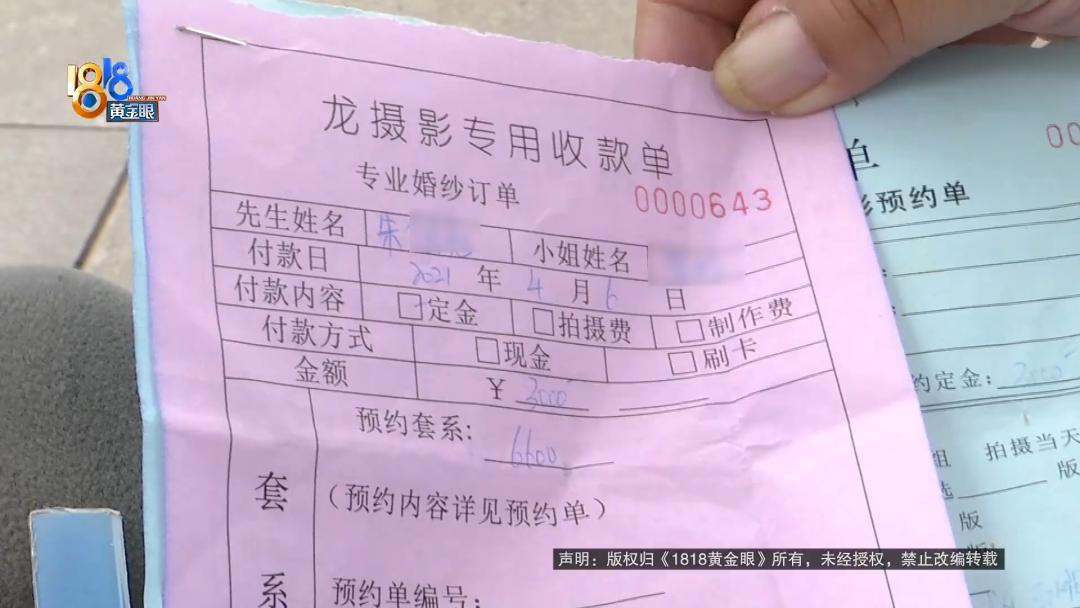 1818
HUANG JIN YAN
黄金眼
龙摄影专用收款单
专业婚纱订单
0000643
先生姓名 朱 小姐姓名
付款日 2021 年 4 月 6 日
付款内容 定金 拍摄费 制作费
付款方式 现金 刷卡
金额 ¥ 3000
预约套系: 6600
套 (预约内容详见预约单)
系 预约单编号:
00
单
影预约单
约定金: 3000
组 拍摄当天
选 版
版
声明：版权归《1818黄金眼》所有，未经授权，禁止改编转载